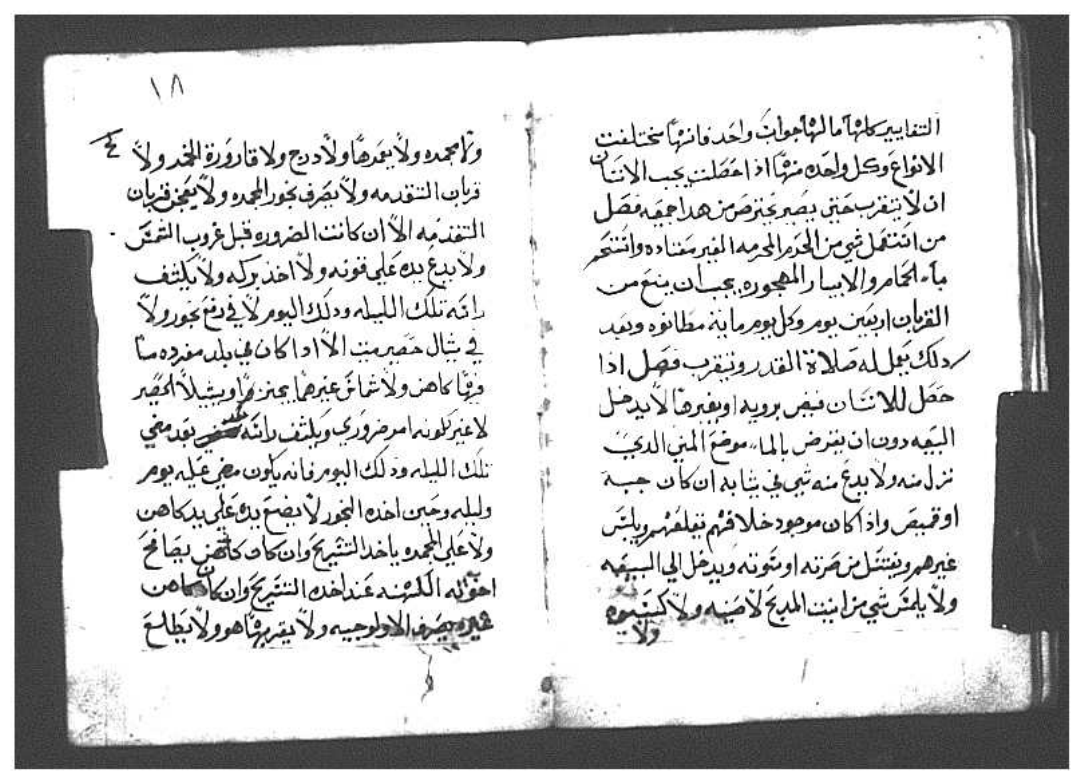 التفايير كلها ما لها جواب واحد فانها مختلفت
الانواع وكل واحده منها اذا حصلت يجب الانسان
ان لا يتقرب حتى يصير يحترص من هدا جميعه فصل
من استعمل شي من الخدم المحرمه الغير معتاده واستحم
بماء الحمام والابيار المهجوره يجب ان يمنع من
القربان اربعين يوم وكل يوم ماية مطانوه وبعد
دلك يعمل له صلاة القدر ويتقرب فصل اذا
حصل للانسان فيض برويه او بغيرها لا يدخل
البيعه دون ان يقرض بالماء موضع المني الدي
نزل منه ولا يدع منه شي في تيابه ان كان جبة
او قميص واذا كان موجود خلافهم فيقلعهم ويلبس
غيرهم ويغتسل من صرته او سوته ويدخل الي البيعه
ولا يلمس شي من انيت المدبح لا صنيه ولا
ولا
١٨
ولا مجمره ولا بعدها ولا درج ولا قارورة الخمر ولا
قربان التقدمه ولا يصرف بخور المجمره ولا يعجن قربان
التقدمه الا ان كانت الضروره قبل غروب الشمس
ولا يدع يده علي قونه ولا اخد بركه ولا يكشف
راسه تلك الليله ودلك اليوم لا في رفع بخور ولا
في شال حصير ميت الا ادا كان في بلد مفرده ما
وها كاهن ولا شماس غيرها يجنزها ويشيلا الحصير
لا غير لكونه امر ضروري ويكشف راسه بعد مضي
تلك الليله ودلك اليوم فانه يكون مضي عليه يوم
وليله وحين اخده البخور لا يضع يده علي يد كاهن
ولا علي المجمره ياخد التسريح وان كان كاهن يصافح
اخوته الكهنه عند اخده التسريح وان كان كاهن
غيره يصرف الاولوجيه ولا يقربها هو ولا يطلع